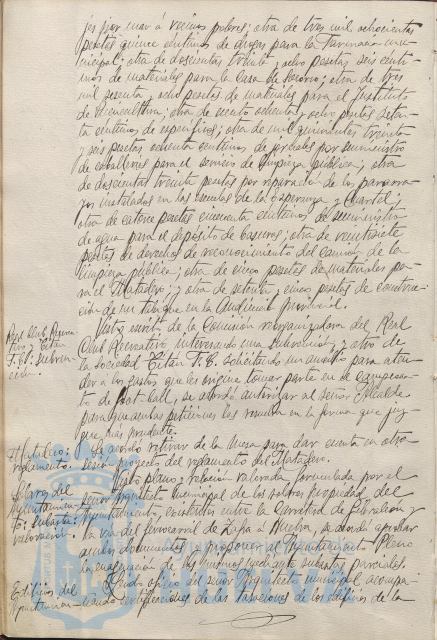 jes por mar á vecinos pobres; otra de tres mil ochocientas
pesetas quince céntimos de drogas para la Farmacia mu-
nicipal; otra de doscientas treinta y ocho pesetas seis cénti-
mos de materiales para la Casa de Socorro; otra de tres
mil sesenta y ocho pesetas de materiales para el Instituto
de Puericultura; otra de ciento ochenta y ocho pesetas seten-
ta céntimos de específicos; otra de mil quinientas treinta
y seis pesetas ochenta céntimos de por suministro
de caballerías para el servicio de limpieza pública; otra
de doscientas treinta pesetas por reparación de los pararra-
yos instalados en las escuelas de la Esperanza y Cuartel;
otra de catorce pesetas cincuenta céntimos de suministro
de agua para el depósito de basuras; otra de veintisiete
pesetas de derechos de reconocimiento del camión de la
limpieza pública; otra de cinco pesetas de materiales pa-
ra el Matadero; y otra de setenta y cinco pesetas de construc-
ción de un tabique en la Audiencia provincial.
Real Club Recrea-
tivo y Titán
F.C.: subven-
ción.
Visto escrito de la Comisión reorganizadora del Real
Club Recreativo interesando una subvención, y otro de
la Sociedad Titán F.C. solicitando un auxilio para aten-
der á los gastos que les origine tomar parte en el campeona-
to de foot-ball, se acordó autorizar al señor Alcalde
para que ambas peticiones las resuelva en la forma que juz-
gue más prudente.
Matadero:
reglamento.
Se acordó retirar de la Mesa para dar cuenta en otra
sesión proyecto del reglamento del Matadero.
Solares del
Ayuntamien-
to: Subasta:
valoración.
Visto plano y relación valorada formulada por el
señor Arquitecto municipal de los solares propiedad del
Ayuntamiento, existentes entre la carretera de Gibraleón y
la vía del ferrocarril de Zafra á Huelva, se acordó aprobar
ambos documentos y proponer al Ayuntamiento Pleno
la enajenación de los mismos mediante subastas parciales.
Edificios del
Ayuntamien-
Leído oficio del señor Arquitecto municipal acompa-
ñando certificaciones de las tasaciones de los edificios de la